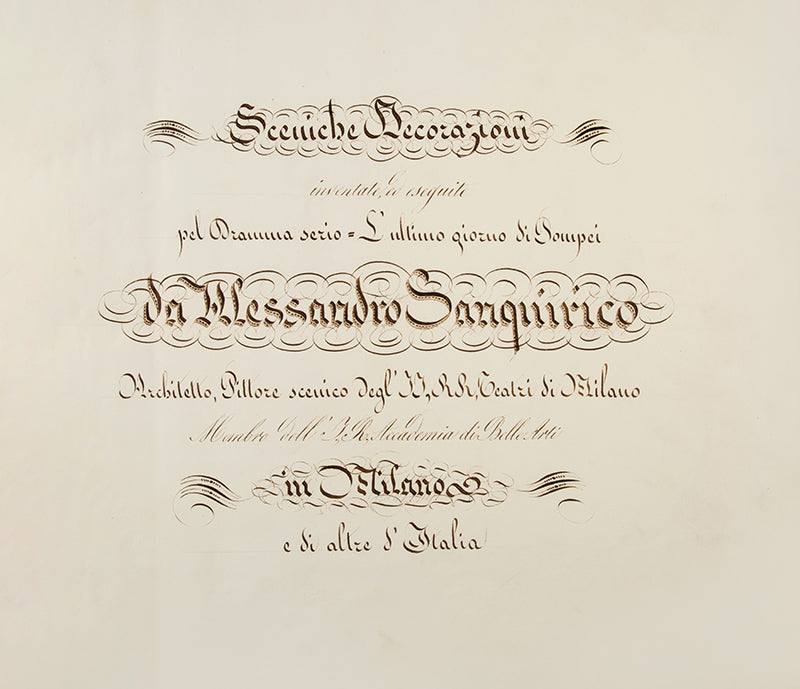 Sceniche Decorazioni
inventate, ed eseguite
pel Dramma serio = L'ultimo giorno di Pompei
da Alessandro Sanquirico
Architetto, Pittore scenico degl' II, RR, Teatri di Milano
Membro dell' I, R, Accademia di Belle Arti
in Milano
e di altre d' Italia